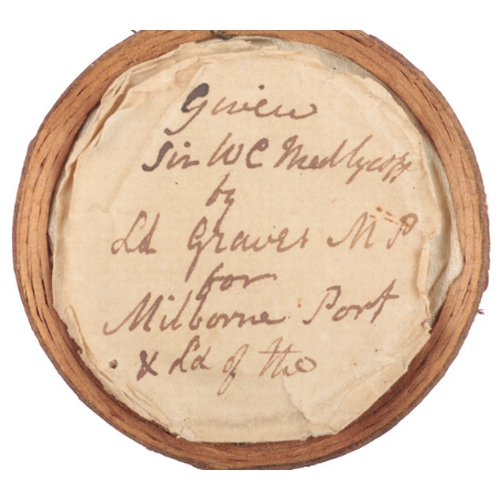 Given
Sir W C Medlycott
by
Ld Graves M P
for
Milborne Port
& Ld of the